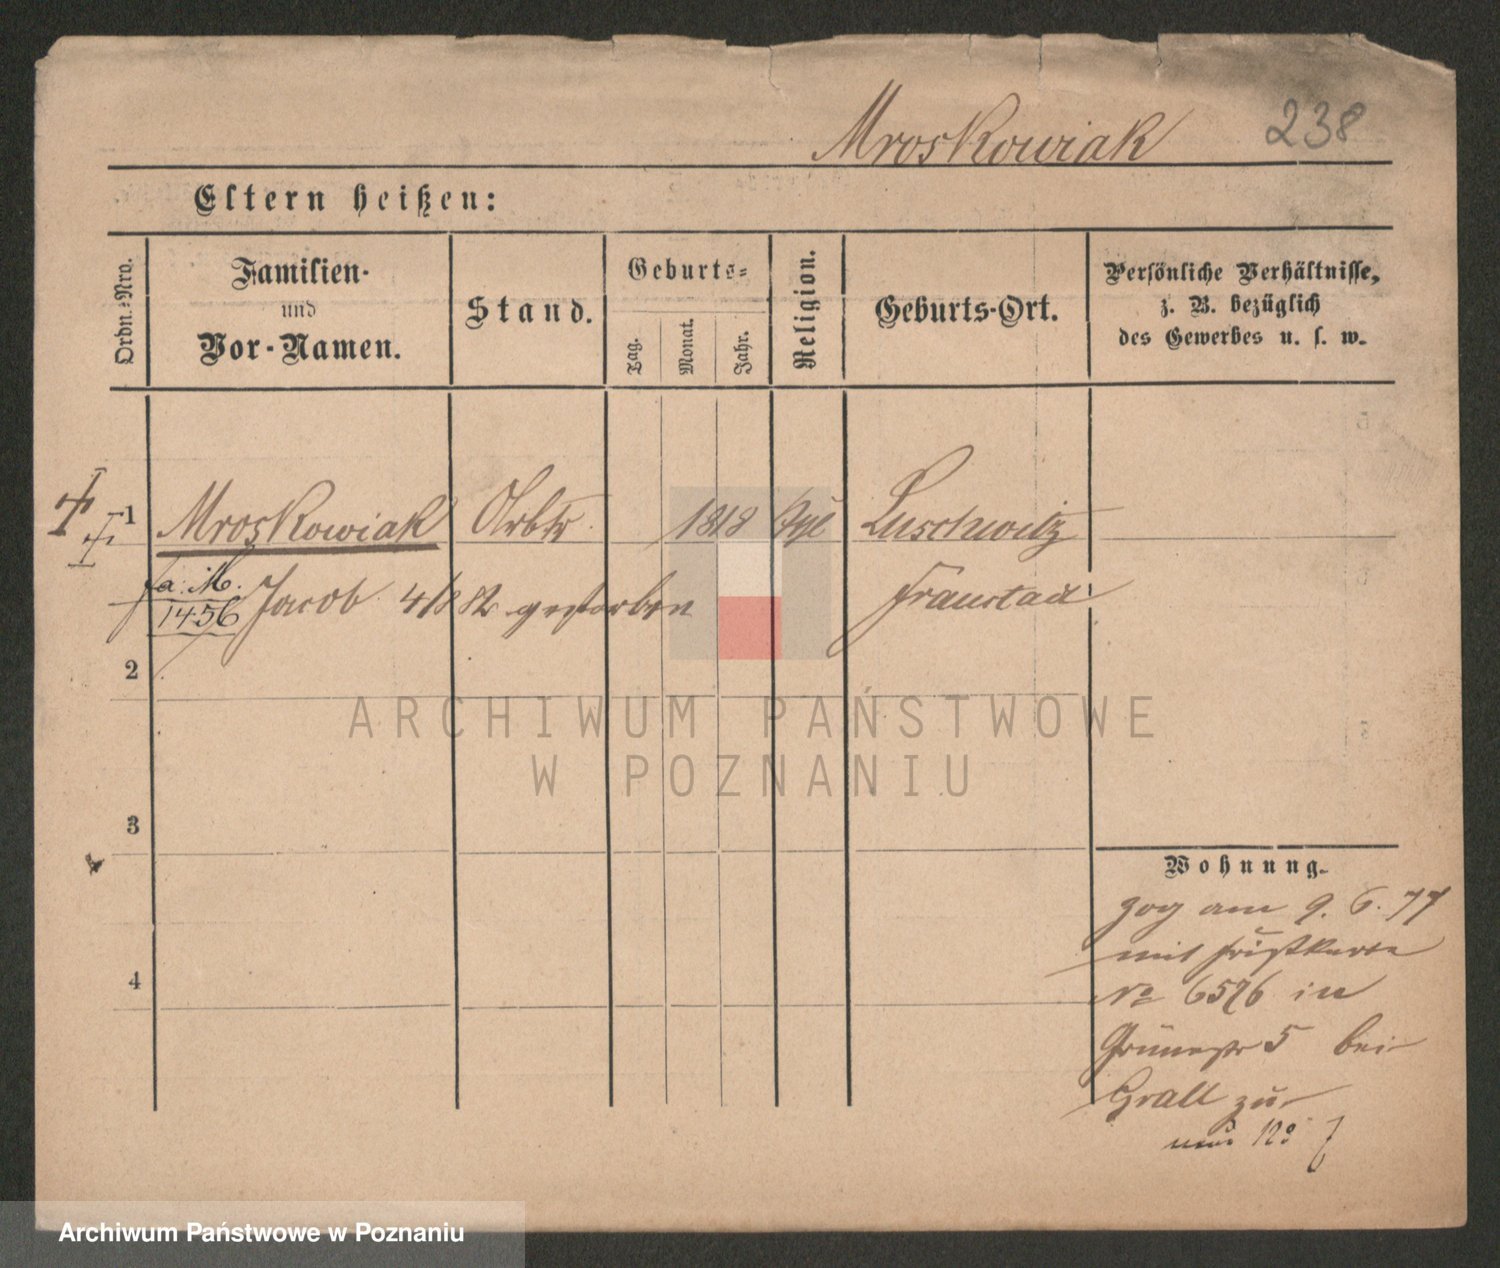 Mroskowiak 238
Eltern heißen:
Ordn.-Nro.
Familien-
und
Vor-Namen.
Stand.
Geburts-
Tag.
Monat.
Jahr.
Religion.
Geburts-Ort.
Persönliche Verhältnisse,
z. B. bezüglich
des Gewerbes u. s. w.
1 Mroskowiak Arbtr. 1818 Luschwitz
fa. M.
1456 Jacob 4/8 82 gestorben Fraustadt
2
ARCHIWUM PAŃSTWOWE
W POZNANIU
3
Wohnung.
zog am 9. 6. 77
mit
4
No 6576 in
Grünestr 5 bei
Grall zu
Archiwum Państwowe w Poznaniu